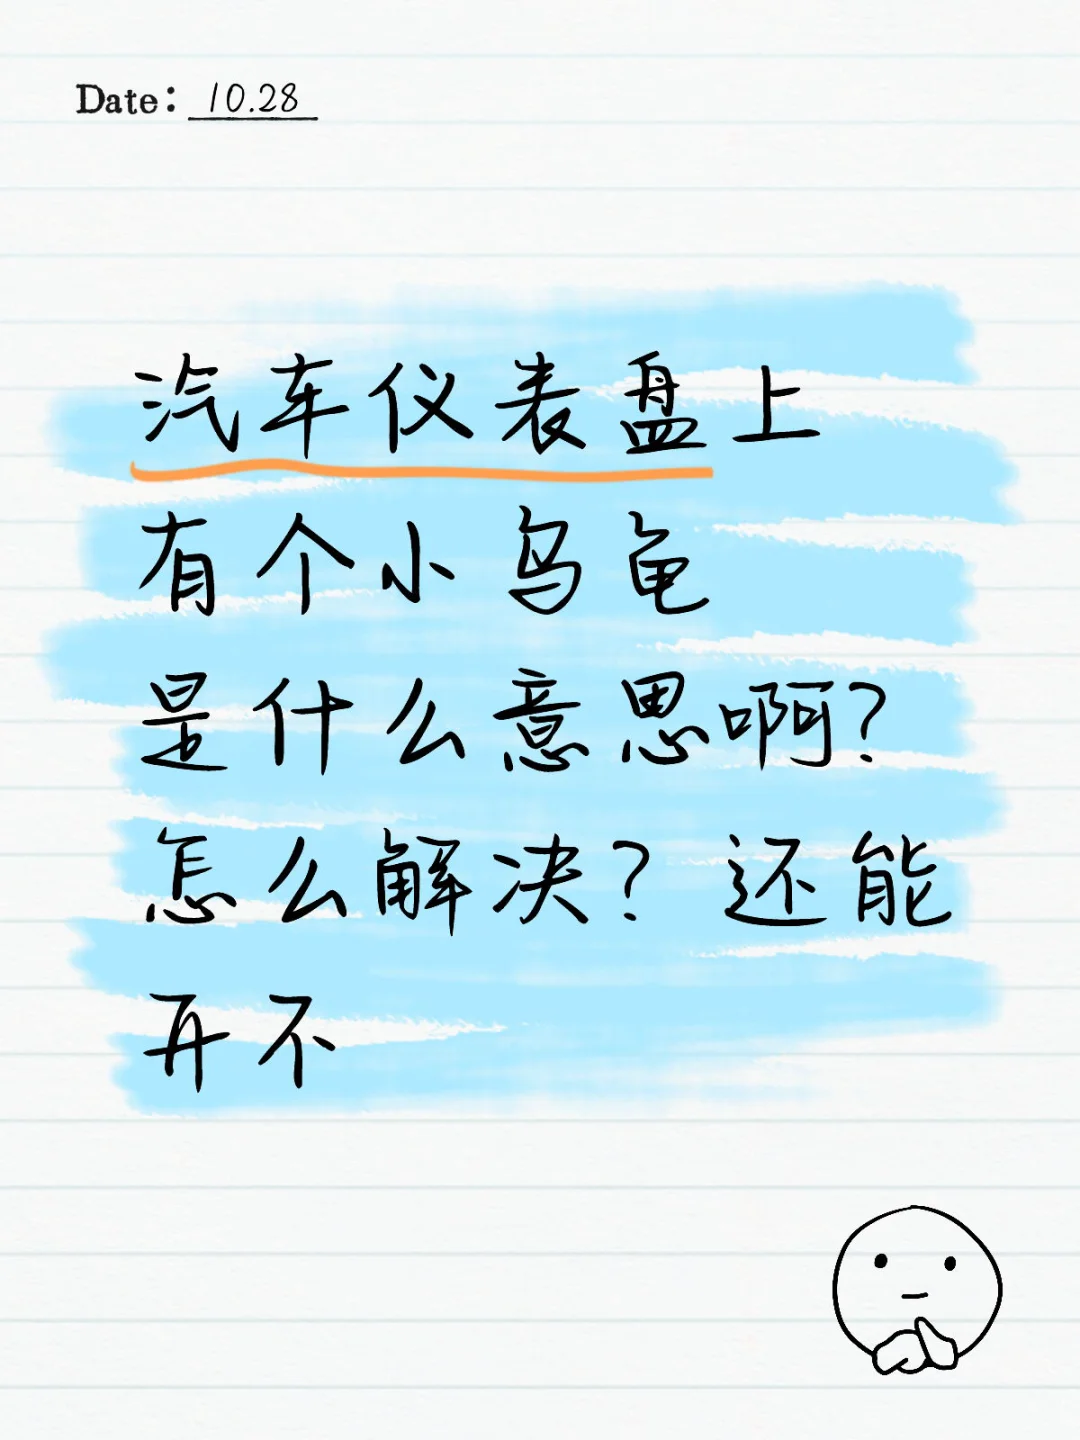 Date: 10.28
汽车仪表盘上
有个小乌龟
是什么意思啊?
怎么解决?还能
开不